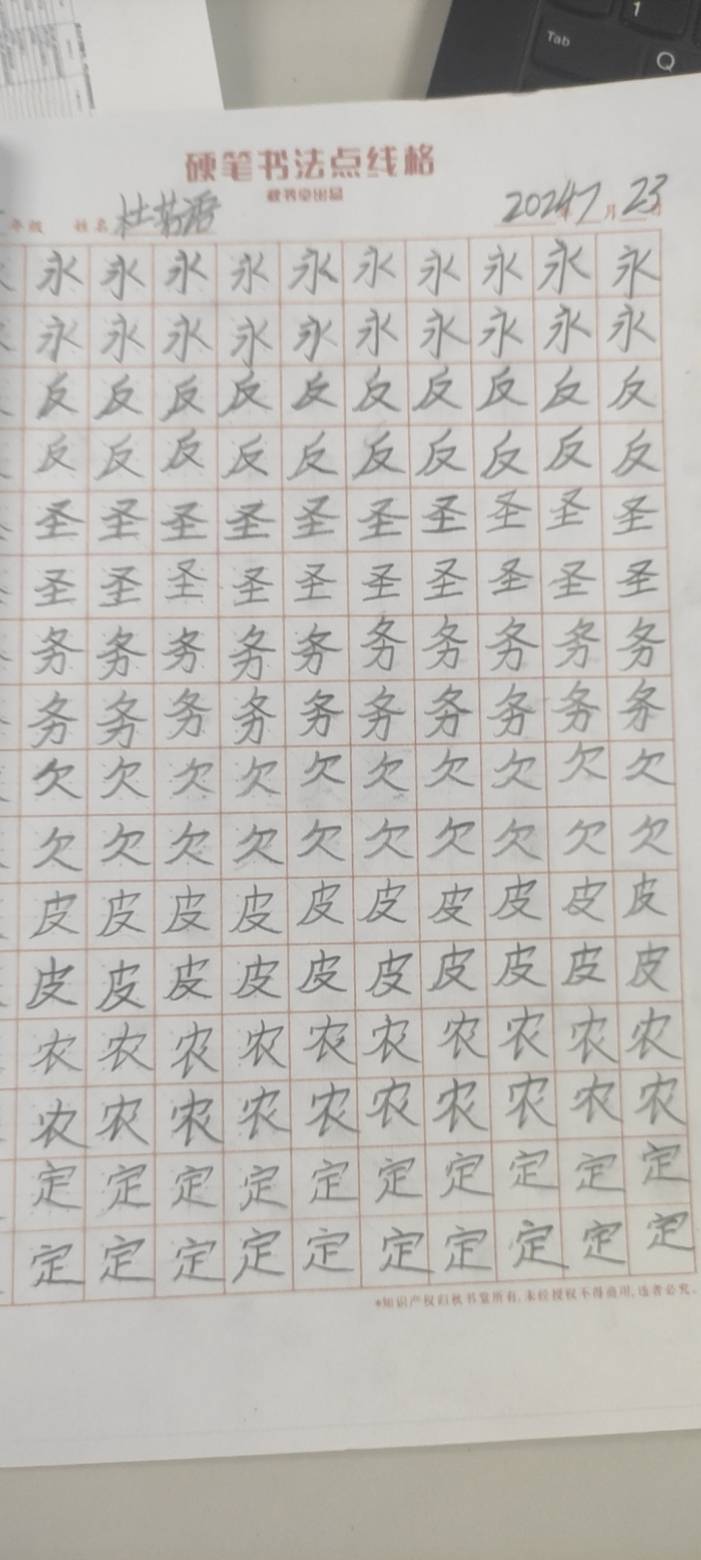 Tab
1
Q
硬笔书法点线格
秋书堂出品
年级 姓名 杜 2024年7月23日
永永永永永永永永永永
永永永永永永永永永永
反反反反反反反反反反
反反反反反反反反反反
圣圣圣圣圣圣圣圣圣圣
圣圣圣圣圣圣圣圣圣圣
务务务务务务务务务务
务务务务务务务务务务
欠欠欠欠欠欠欠欠欠欠
欠欠欠欠欠欠欠欠欠欠
皮皮皮皮皮皮皮皮皮皮
皮皮皮皮皮皮皮皮皮皮
农农农农农农农农农农
农农农农农农农农农农
定定定定定定定定定定
定定定定定定定定定定
*知识产权归秋书堂所有,未经授权不得商用,违者必究。